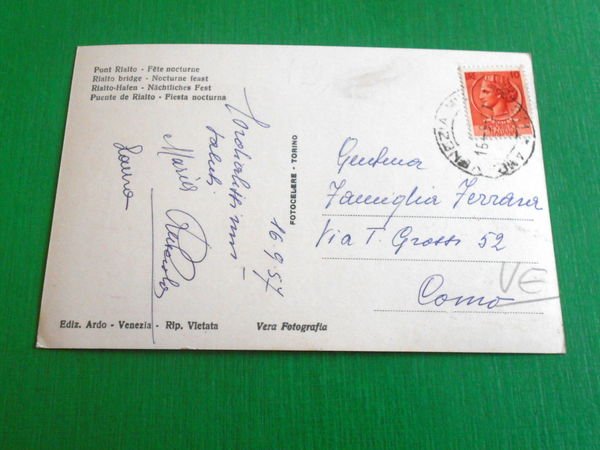 Pont Rialto - Fête nocturne
Rialto bridge - Nocturne feast
Rialto-Hafen - Nächtliches Fest
Puente de Rialto - Fiesta nocturna
Cordialissimi
saluti
Maria
Lauro
16.9.57
FOTOCELERE - TORINO
Gentma
Famiglia Ferrara
Via T. Grossi 52
Como
VE
VENEZIA
Ediz. Ardo - Venezia - Rip. Vietata
Vera Fotografia